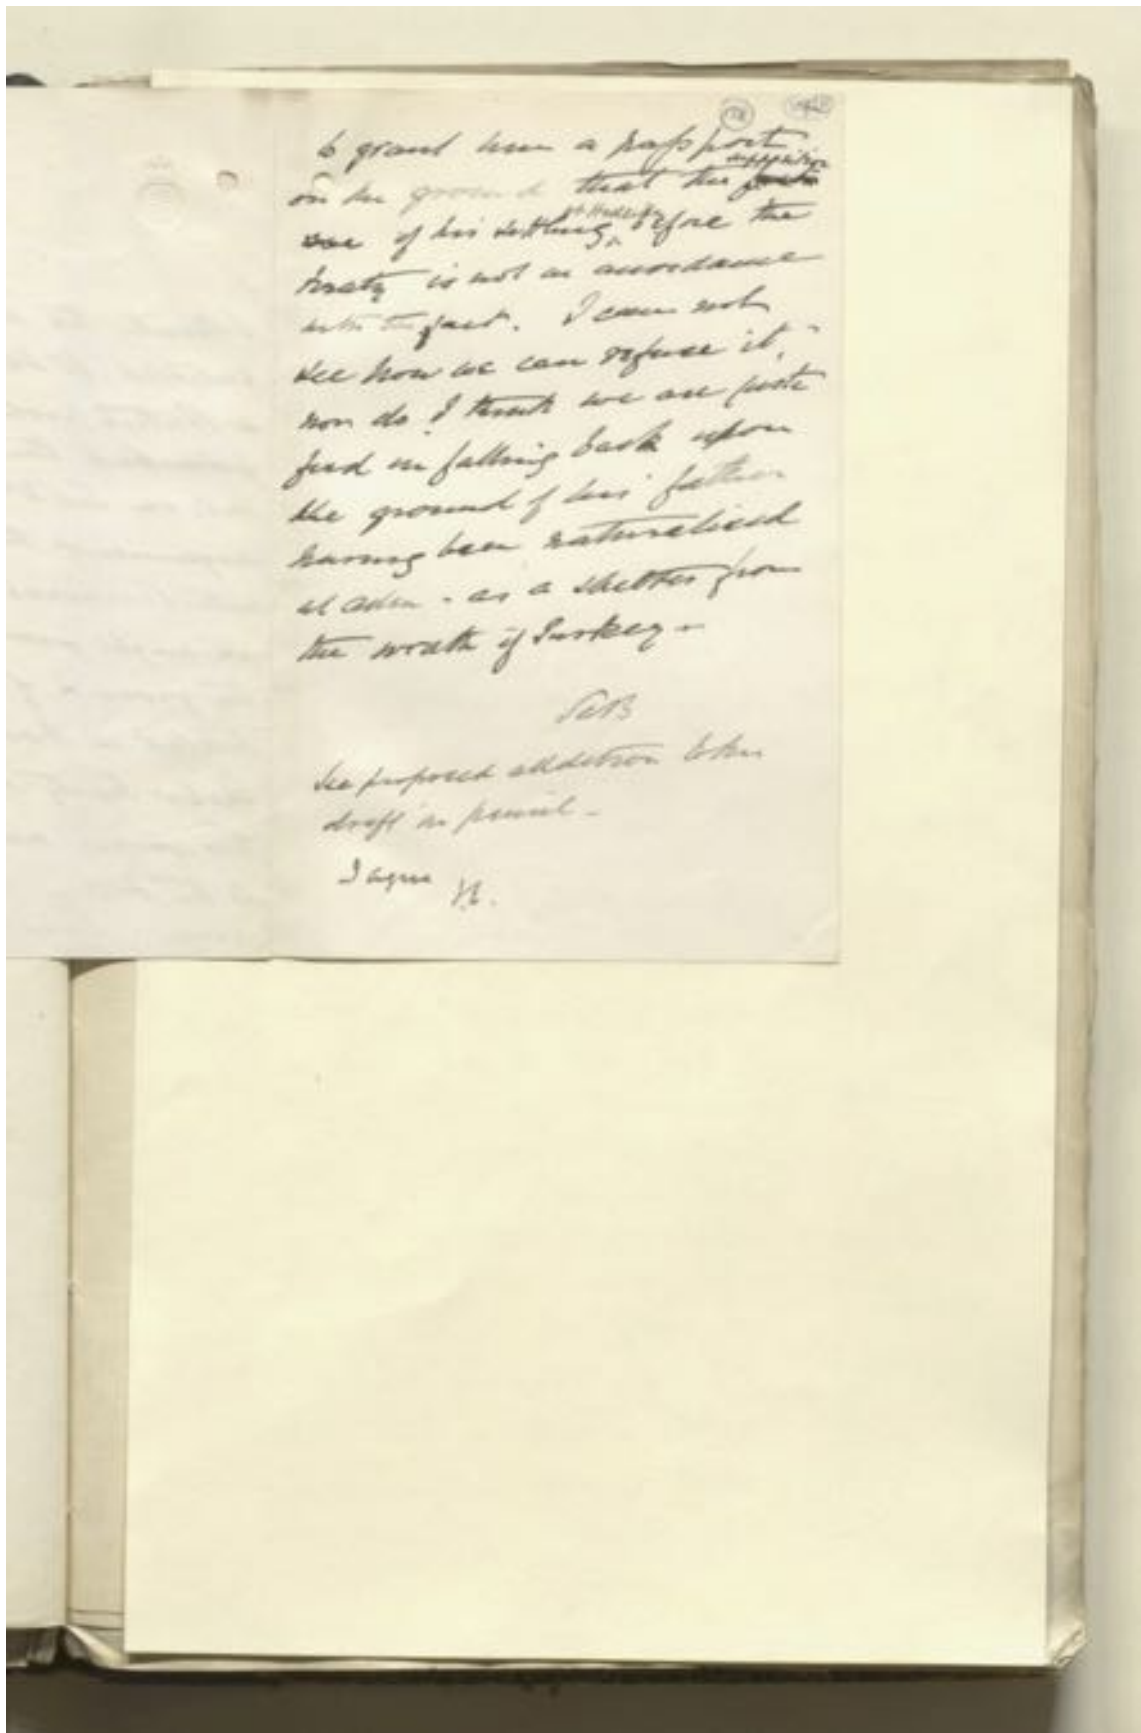 to grant him a passport
on the ground that the supposition
of his settling at Hodeida before the
treaty is not in accordance
with the fact. I can not
see how we can refuse it,
nor do I think we are justi
fied in falling back upon
the ground of his father
having been naturalised
at Aden - as a shelter from
the wrath of Turkey -
See proposed addition to the
draft in pencil -
I agree